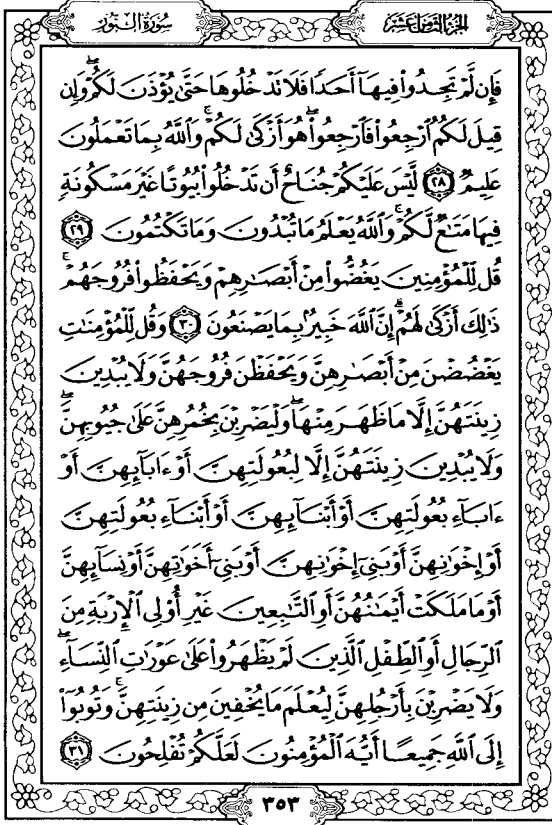 سُورَةُ النُّورِ
الجزء الثامن عشر
فَإِن لَّمْ تَجِدُوا۟ فِيهَآ أَحَدًا فَلَا تَدْخُلُوهَا حَتَّىٰ يُؤْذَنَ لَكُمْ ۖ وَإِن
قِيلَ لَكُمُ ٱرْجِعُوا۟ فَٱرْجِعُوا۟ ۖ هُوَ أَزْكَىٰ لَكُمْ ۚ وَٱللَّهُ بِمَا تَعْمَلُونَ
عَلِيمٌ ٢٨ لَّيْسَ عَلَيْكُمْ جُنَاحٌ أَن تَدْخُلُوا۟ بُيُوتًا غَيْرَ مَسْكُونَةٍ
فِيهَا مَتَـٰعٌ لَّكُمْ ۚ وَٱللَّهُ يَعْلَمُ مَا تُبْدُونَ وَمَا تَكْتُمُونَ ٢٩
قُل لِّلْمُؤْمِنِينَ يَغُضُّوا۟ مِنْ أَبْصَـٰرِهِمْ وَيَحْفَظُوا۟ فُرُوجَهُمْ ۚ
ذَٰلِكَ أَزْكَىٰ لَهُمْ ۗ إِنَّ ٱللَّهَ خَبِيرٌۢ بِمَا يَصْنَعُونَ ٣٠ وَقُل لِّلْمُؤْمِنَـٰتِ
يَغْضُضْنَ مِنْ أَبْصَـٰرِهِنَّ وَيَحْفَظْنَ فُرُوجَهُنَّ وَلَا يُبْدِينَ
زِينَتَهُنَّ إِلَّا مَا ظَهَرَ مِنْهَا ۖ وَلْيَضْرِبْنَ بِخُمُرِهِنَّ عَلَىٰ جُيُوبِهِنَّ ۖ
وَلَا يُبْدِينَ زِينَتَهُنَّ إِلَّا لِبُعُولَتِهِنَّ أَوْ ءَابَآئِهِنَّ أَوْ
ءَابَآءِ بُعُولَتِهِنَّ أَوْ أَبْنَآئِهِنَّ أَوْ أَبْنَآءِ بُعُولَتِهِنَّ
أَوْ إِخْوَٰنِهِنَّ أَوْ بَنِىٓ إِخْوَٰنِهِنَّ أَوْ بَنِىٓ أَخَوَٰتِهِنَّ أَوْ نِسَآئِهِنَّ
أَوْ مَا مَلَكَتْ أَيْمَـٰنُهُنَّ أَوِ ٱلتَّـٰبِعِينَ غَيْرِ أُو۟لِى ٱلْإِرْبَةِ مِنَ
ٱلرِّجَالِ أَوِ ٱلطِّفْلِ ٱلَّذِينَ لَمْ يَظْهَرُوا۟ عَلَىٰ عَوْرَٰتِ ٱلنِّسَآءِ ۖ
وَلَا يَضْرِبْنَ بِأَرْجُلِهِنَّ لِيُعْلَمَ مَا يُخْفِينَ مِن زِينَتِهِنَّ ۚ وَتُوبُوٓا۟
إِلَى ٱللَّهِ جَمِيعًا أَيُّهَ ٱلْمُؤْمِنُونَ لَعَلَّكُمْ تُفْلِحُونَ ٣١
٣٥٣